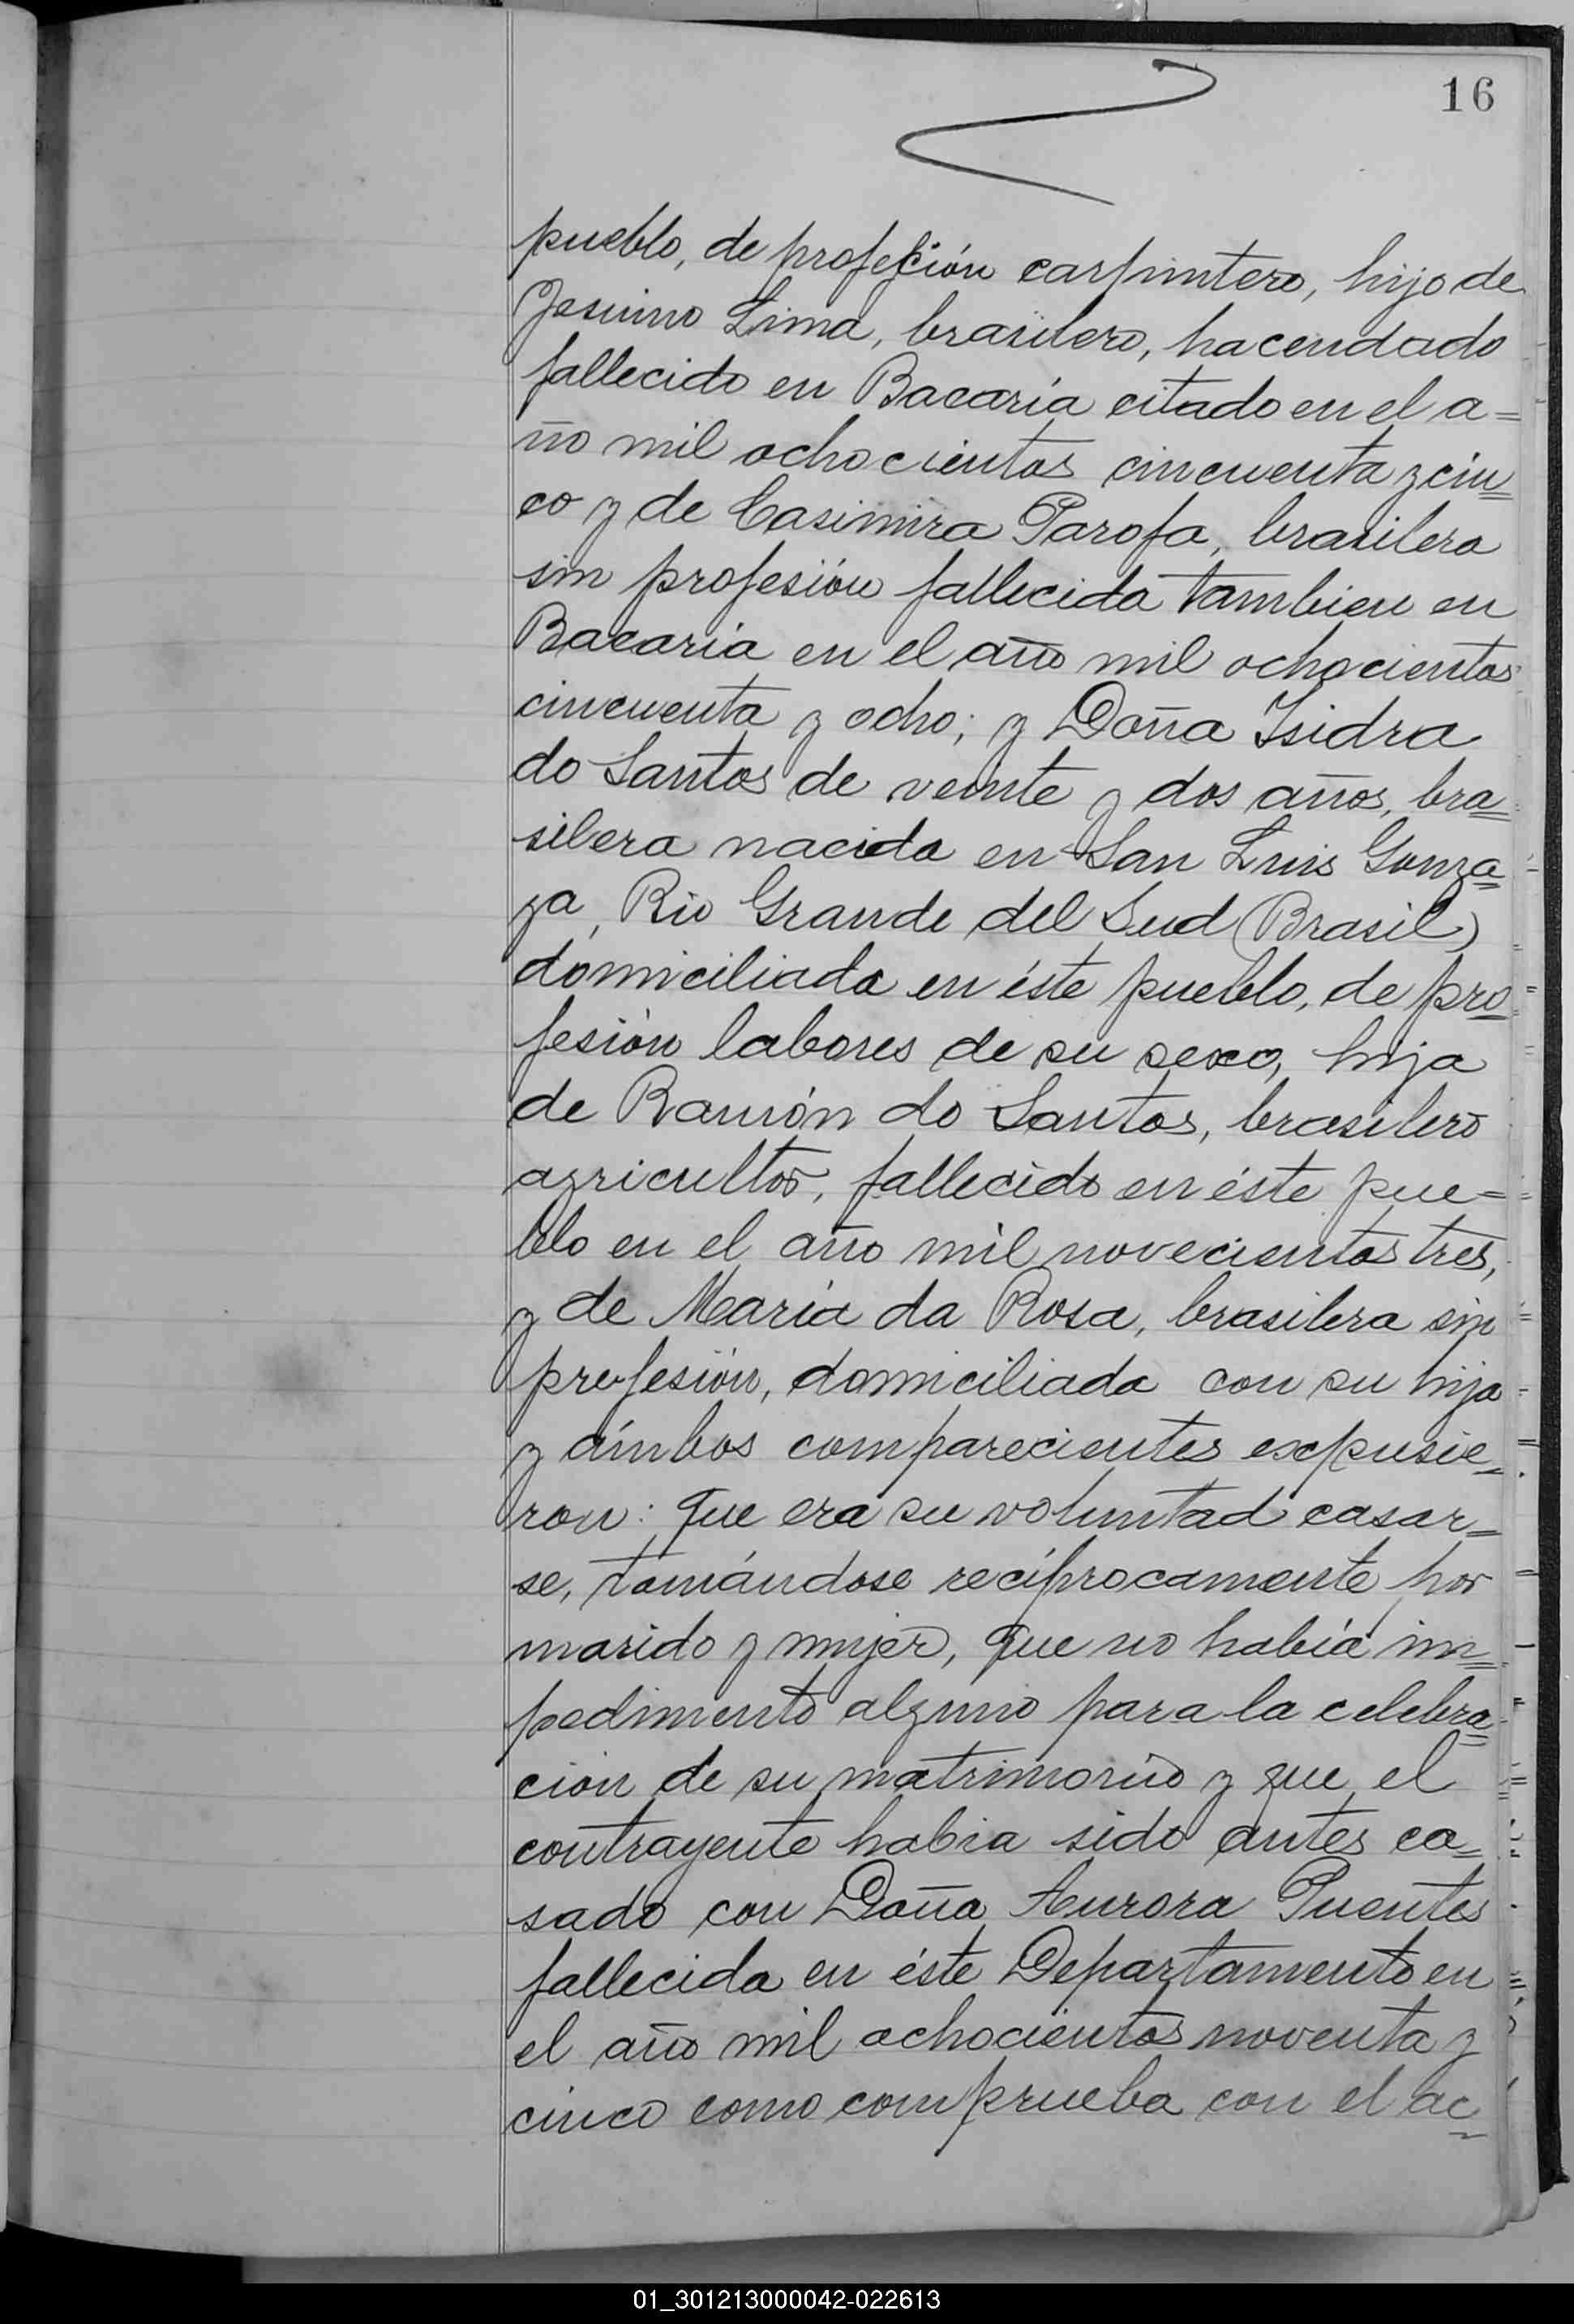 16
pueblo, de profesión carpintero, hijo de
Jesuino Lima, brasilero, hacendado
fallecido en Bacaria citado en el a=
ño mil ochocientos cincuenta y cin=
co y de Casimira Parofa, brasilera
sin profesión fallecida tambien en
Bacaria en el año mil ochocientos
cincuenta y ocho; y Doña Isidra
do Santos de veinte y dos años, bra=
silera nacida en San Luis Gonza=
ga, Rio Grande del Sud (Brasil)
domiciliada en éste pueblo, de pro=
fesión labores de su sexo, hija
de Ramón do Santos, brasilero
agricultor, fallecido en éste pue=
blo en el año mil novecientos tres,
y de María da Rosa, brasilera sin
profesión, domiciliada con su hija
y ámbos comparecientes expusie=
ron: que era su voluntad casar=
se, tomándose recíprocamente por
marido y mujer, que no había im=
pedimento alguno para la celebra=
ción de su matrimonio y que el
contrayente habia sido antes ca=
sado con Doña Aurora Puentes
fallecida en éste Departamento en
el año mil ochocientos noventa y
cinco como comprueba con el ac=
01_301213000042-022613